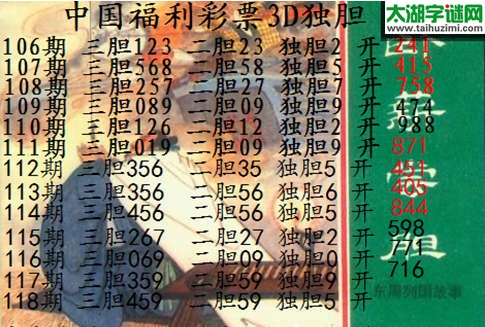 中国福利彩票3D独胆
太湖字谜网
www.taihuzimi.com
106期 三胆123 二胆23 独胆2 开 241
107期 三胆568 二胆58 独胆5 开 415
108期 三胆257 二胆27 独胆7 开 758
109期 三胆089 二胆09 独胆9 开 474
110期 三胆126 二胆12 独胆2 开 988
111期 三胆019 二胆09 独胆9 开 871
112期 三胆356 二胆35 独胆5 开 451
113期 三胆356 二胆56 独胆6 开 405
114期 三胆456 二胆56 独胆5 开 844
115期 三胆267 二胆27 独胆2 开 598
116期 三胆069 二胆09 独胆0 开 771
117期 三胆359 二胆59 独胆9 开 716
118期 三胆459 二胆59 独胆5 开
东周列国故事